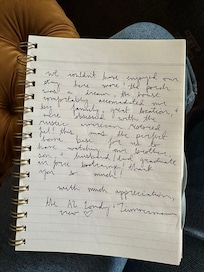 We couldn't have enjoyed our
stay here more! The porch
was a dream, the house
comfortably accomodated our
big family, great location, &
we're obsessed with the
restored
feel! This was the perfect
home base for us to
have watching my brother
son & husband/dad graduate
air force bootcamp. Thank
you so much!
With much appreciation,
The AZ
crew ♡